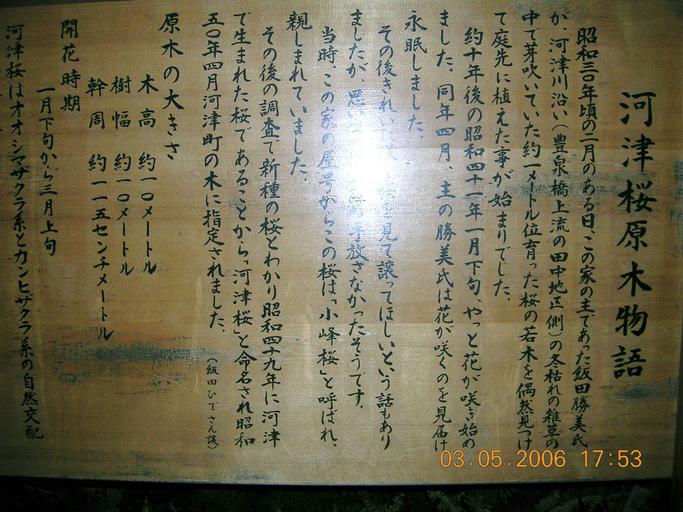 河津桜原木物語
昭和三〇年頃の二月のある日、この家の主であった飯田勝美氏
が、河津川沿い（豊泉橋上流の田中地区側）の冬枯れの雑草の
中で芽吹いていた約一メートル位育った桜の若木を偶然見つけ
て庭先に植えた事が始まりでした。
約十年後の昭和四十一年一月下旬、やっと花が咲き始め
ました。同年四月、主の勝美氏は花が咲くのを見届け
永眠しました。
その後きれいな を見て譲ってほしいという話もあり
ましたが、思い 手放さなかったそうです。
当時、この家の屋号からこの桜は「小峰桜」と呼ばれ、
親しまれていました。
その後の調査で新種の桜とわかり昭和四十九年に河津
で生まれた桜であることから「河津桜」と命名され昭和
五〇年四月河津町の木に指定されました。
（飯田ひでさん談）
原木の大きさ
木高 約一〇メートル
樹幅 約一〇メートル
幹周 約一一五センチメートル
開花時期
一月下旬から三月上旬
河津桜はオオシマザクラ系とカンヒザクラ系の自然交配
03.05.2006 17:53